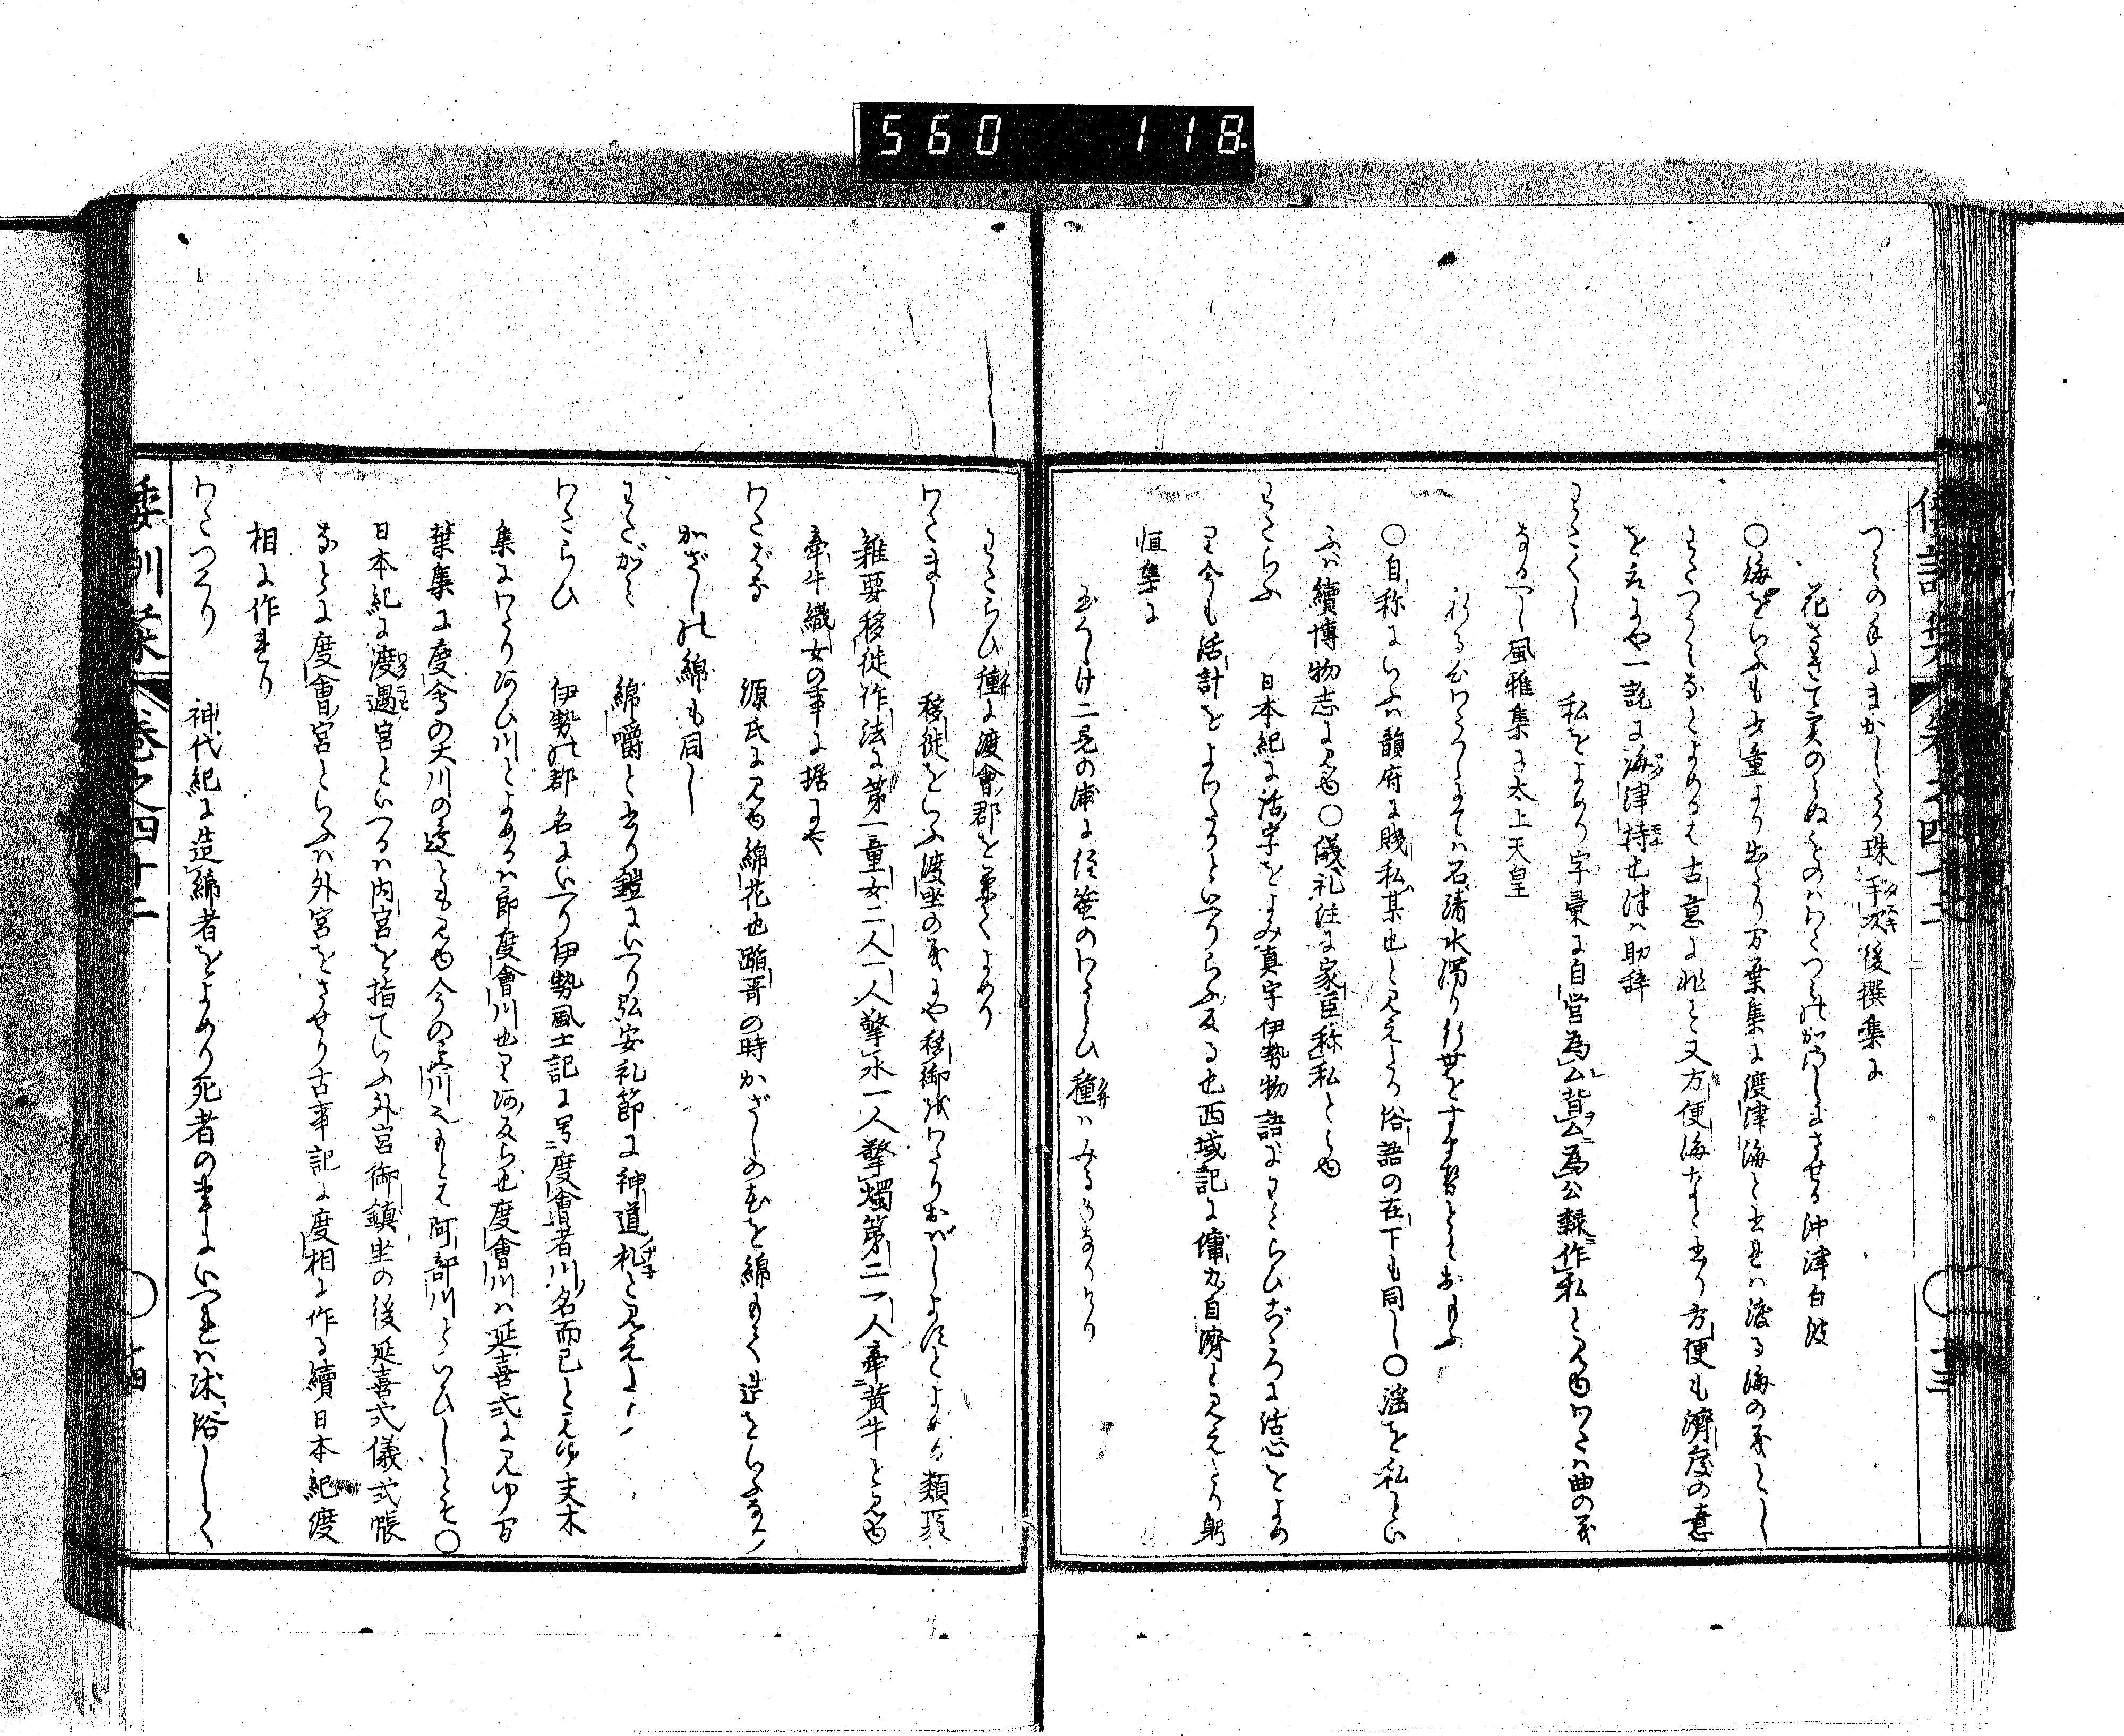 560 118
倭訓栞 巻之四十二 ○ 十三
つみの手にまかしたる珠手次後撰集に
花さきて実のらぬものはわたつみのかざしにさせる沖津白波
○海をいふも少童より出たり万葉集に渡津海と書るは渡る海の義とし
わたつうみなとよめるは古意に非す又方便海なと書り方便も済度の意
を以にや一説に海津持也津は助辞
わたくし 私をよめり字彙に自営為ム背ム為公隷作私と見ゆわたは曲の義
なるへし風雅集に太上天皇
祈る心わたくしにては石清水濁り行世をすませとそおもふ
○自称にいふは韻府に賤私某也と見えたり俗語の在下も同し○淫を私とい
ふは續博物志に見ゆ○儀礼注に家臣称私とみゆ
わたらふ 日本紀に活字をよみ真字伊勢物語にわたらひごゝろに活心をよめ
り今も活計をよわたりといへりらふ反る也西域記に傭力自済と見えたり躬
恒集に
玉くしけ二見の浦に住蜑のわたらひ種はみるめなりけり
わたらひ種に渡會郡を兼てよめり
わたまし 移徙をいふ渡坐の義にや移御我わたりおはしますとよめる類聚
雑要移徙作法に第一童女二人一人擎水一人擎燭第二一人牽黄牛と見ゆ
牽牛織女の事に据にや
わたばな 源氏に見ゆ綿花也踏哥の時かざしの花を綿もて造をいふなり
かざしの綿も同し
わたがみ 綿嚼と書り鎧にいへり弘安礼節に神道札と見えたり
わたらひ 伊勢の郡名にいへり伊勢風土記に号度會者川名而已と見ゆ夫木
集にわたり河ひ川とよめるは即度會川也り河反ら也度會川は延喜式に見ゆ万
葉集に度會の大川の邊とも見ゆ今の宮川也もとは阿部川といひしとそ○
日本紀に渡遇宮といへるは内宮を指ていふ外宮御鎮坐の後延喜式儀式帳
なとに度會宮といふは外宮をさせり古事記に度相に作る續日本紀渡
相に作れり
わたつくり 神代紀に造綿者をよめり死者の事にいへれは沐浴しして
倭訓栞 巻之四十二 ○ 十四